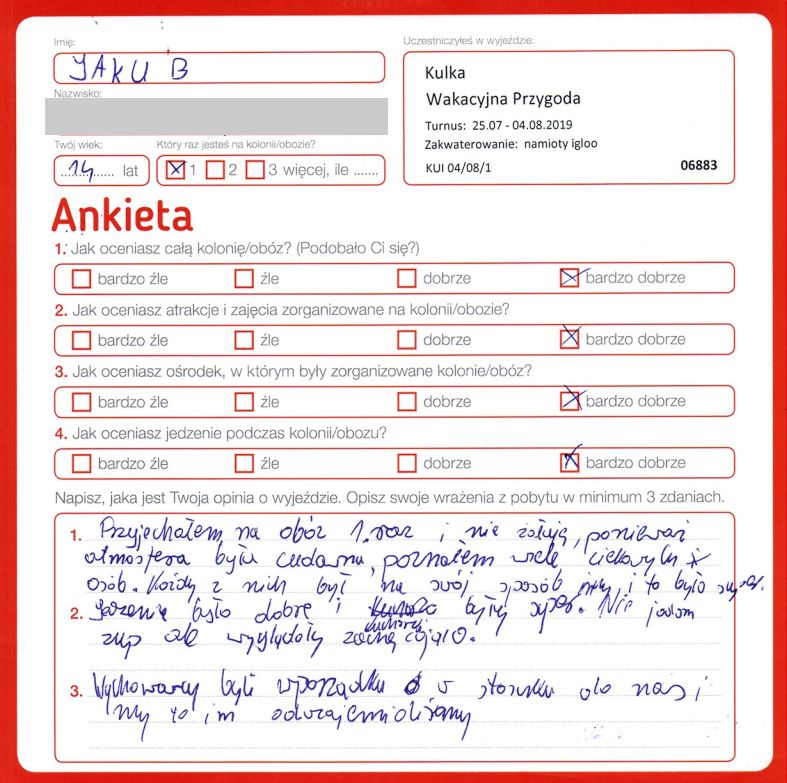 Imię:
JAKUB
Nazwisko:
Twój wiek:
14 lat
Który raz jesteś na kolonii/obozie?
1 2 3 więcej, ile .......
Uczestniczyłeś w wyjeździe:
Kulka
Wakacyjna Przygoda
Turnus: 25.07 - 04.08.2019
Zakwaterowanie: namioty igloo
KUI 04/08/1 06883
Ankieta
1. Jak oceniasz całą kolonię/obóz? (Podobało Ci się?)
bardzo źle źle dobrze bardzo dobrze
2. Jak oceniasz atrakcje i zajęcia zorganizowane na kolonii/obozie?
bardzo źle źle dobrze bardzo dobrze
3. Jak oceniasz ośrodek, w którym były zorganizowane kolonie/obóz?
bardzo źle źle dobrze bardzo dobrze
4. Jak oceniasz jedzenie podczas kolonii/obozu?
bardzo źle źle dobrze bardzo dobrze
Napisz, jaka jest Twoja opinia o wyjeździe. Opisz swoje wrażenia z pobytu w minimum 3 zdaniach.
1. Przyjechałem na obóz 1. raz i nie żałuję, ponieważ
atmosfera była cudowna, poznałem wiele ciekawych
osób. Każdy z nich był na swój sposób inny i to było super.
2. Jedzenie było dobre i kucharz były super. Nie jadam
zup ale wyglądały zachęcająco.
3. Wychowawcy byli wporządku w stosunku do nas i
my to im odwzajemnialiśmy